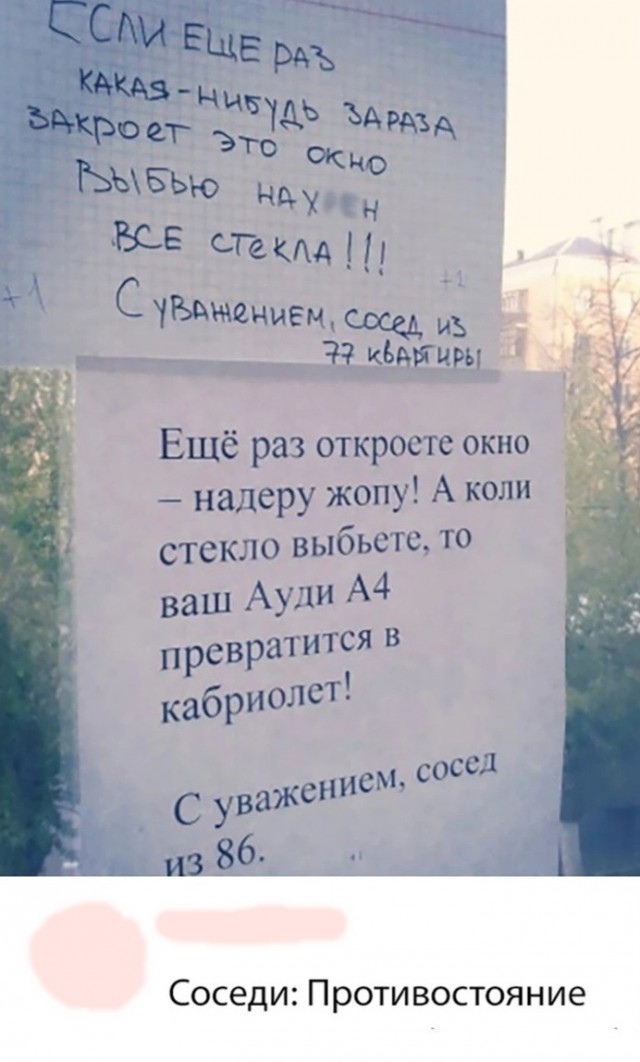 ЕСЛИ ЕЩЕ РАЗ
КАКАЯ-НИБУДЬ ЗАРАЗА
ЗАКРОЕТ ЭТО ОКНО
ВЫБЬЮ НАХ Н
ВСЕ СТЕКЛА!!!
+1
+1
С УВАЖЕНИЕМ, СОСЕД ИЗ
77 КВАРТИРЫ
Ещё раз откроете окно
– надеру жопу! А коли
стекло выбьете, то
ваш Ауди А4
превратится в
кабриолет!
С уважением, сосед
из 86.
Соседи: Противостояние